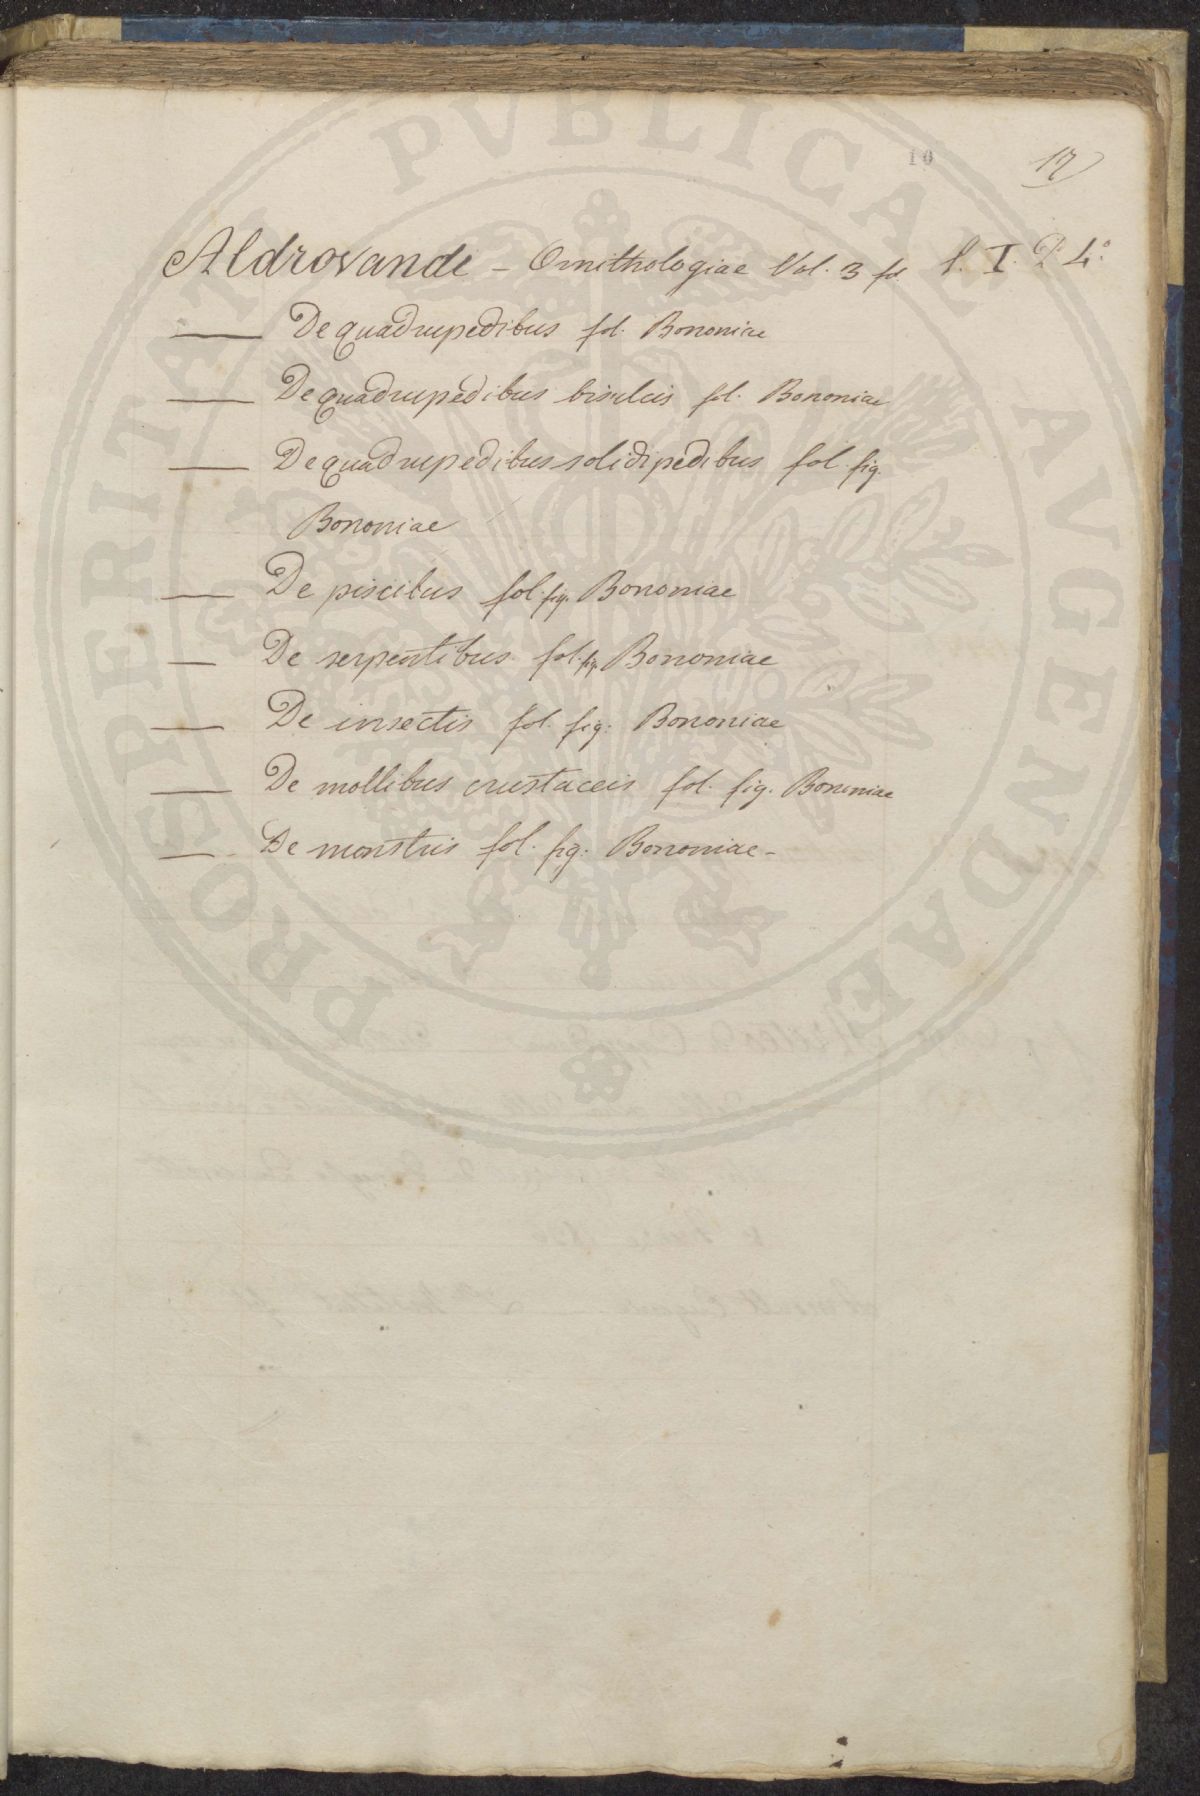 10
17
Aldrovande - Ornithologiae Vol. 3 fol. S. I. P. 4.º
De quadrupedibus fol. Bononiae
De quadrupedibus bisulcis fol. Bononiae
De quadrupedibus solidipedibus fol. fig.
Bononiae
De piscibus fol. fig. Bononiae
De serpentibus fol. fig. Bononiae
De insectis fol. fig. Bononiae
De mollibus crustaceis fol. fig. Bononiae
De monstris fol. fig. Bononiae -
PROSPERITATI PVBLICAE AVGENDAE